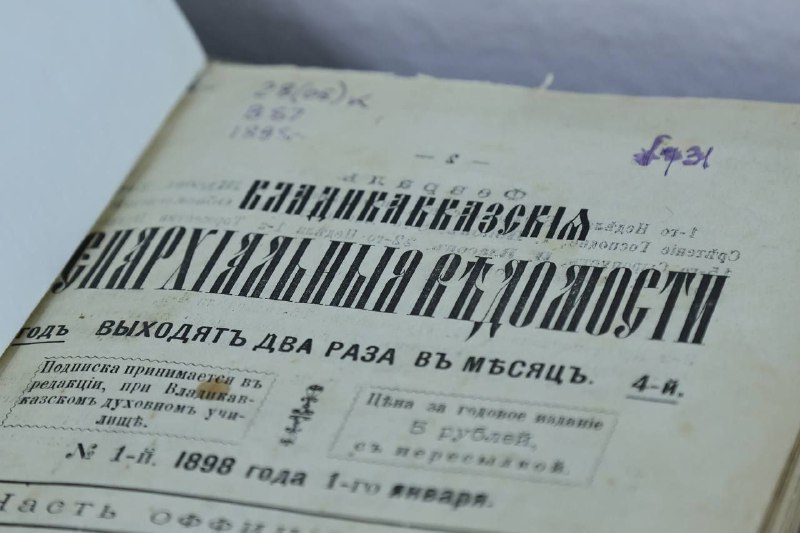 28(05)
В 67
1895
— 2 —
431
Февраль
ВЛАДИКАВКАЗСКІЯ
ЕПАРХІАЛЬНЫЯ ВѢДОМОСТИ
годъ ВЫХОДЯТЪ ДВА РАЗА ВЪ МѢСЯЦЪ. 4-й.
Подписка принимается въ
редакціи, при Владикав-
казскомъ духовномъ учи-
лищѣ.
Цѣна за годовое изданіе
5 рублей,
съ пересылкой.
№ 1-й. 1898 года 1-го января.
Часть оффи